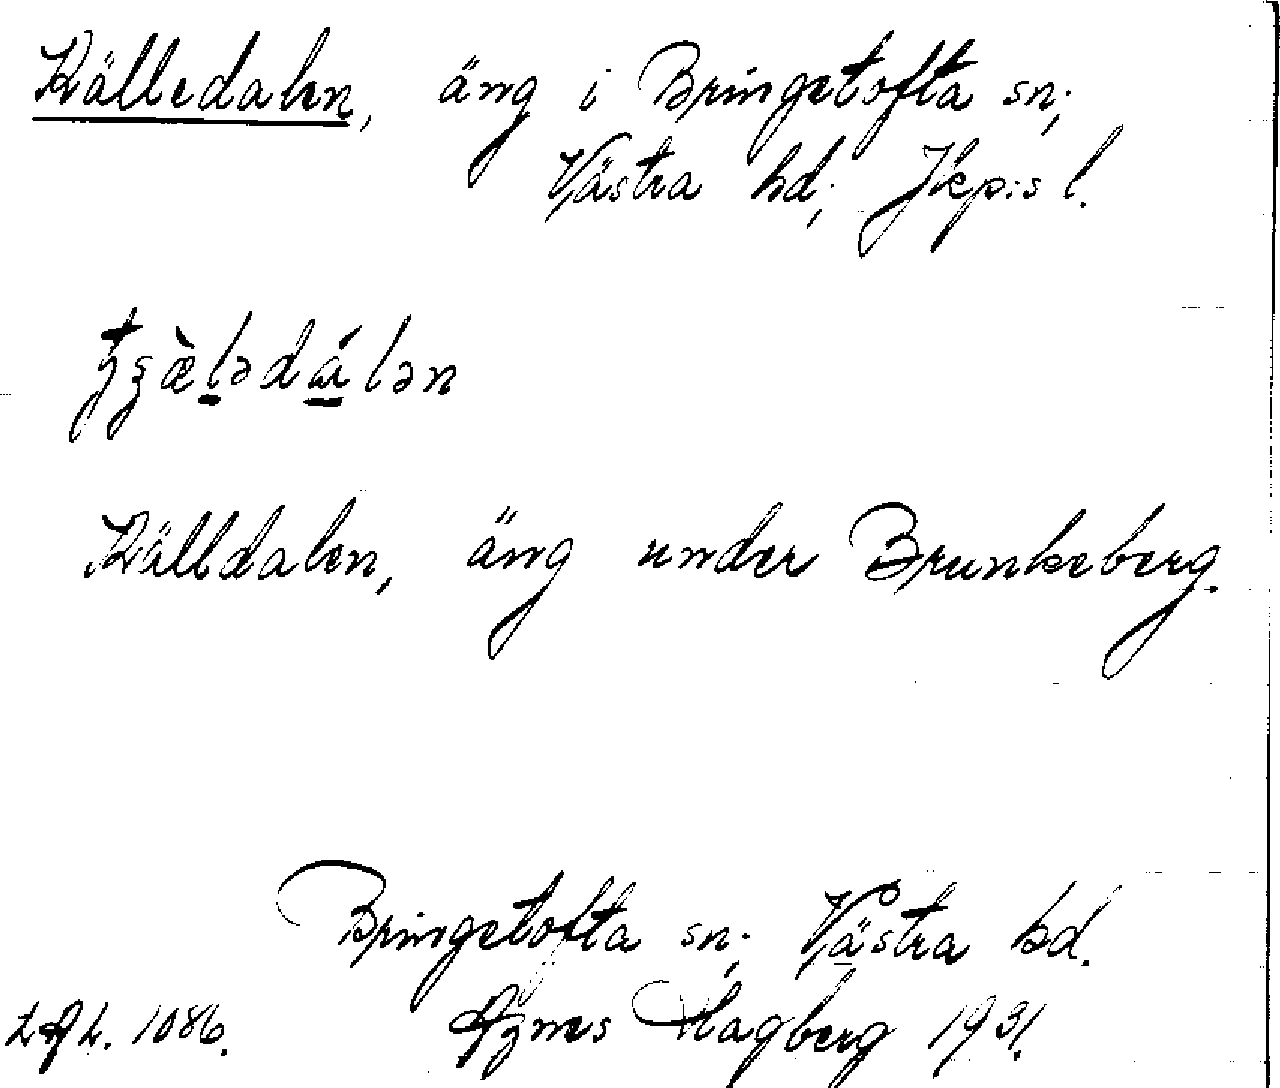 Källedalen, äng i Bringetofta sn;
Västra hd; Jkp:s l.
Källdalen, äng under Brunkeberg.
Bringetofta sn; Västra hd.
Agnes Hagberg 1931.
1086.